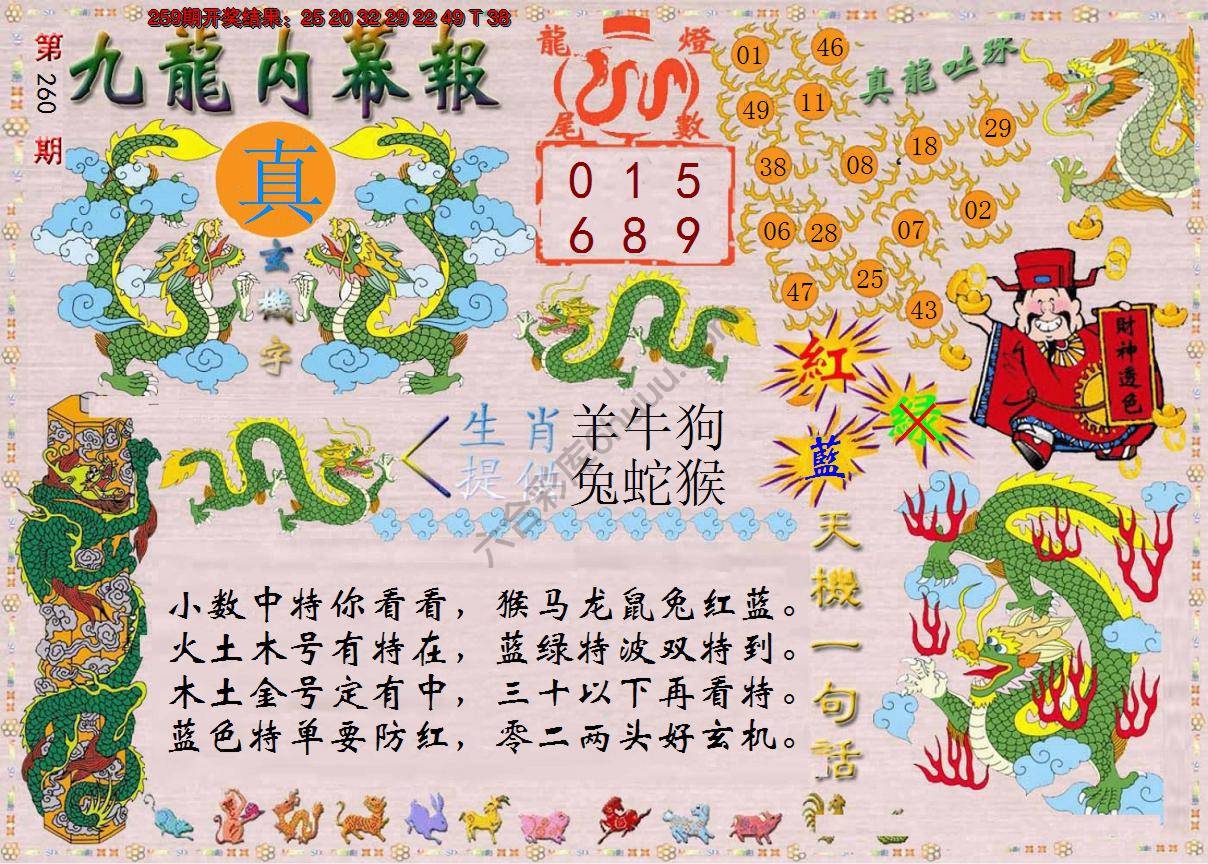 259期开奖结果：25 20 32 29 22 49 T 38
第260期
九龍内幕報
真
玄機字
龍燈
尾數
0 1 5
6 8 9
真龍吐珠
01
46
49
11
38
08
18
29
06
28
07
02
47
25
43
財神透色
紅
绿
藍
生肖 羊牛狗
提供 兔蛇猴
天機一句话
小数中特你看看，猴马龙鼠兔红蓝。
火土木号有特在，蓝绿特波双特到。
木土金号定有中，三十以下再看特。
蓝色特单要防红，零二两头好玄机。